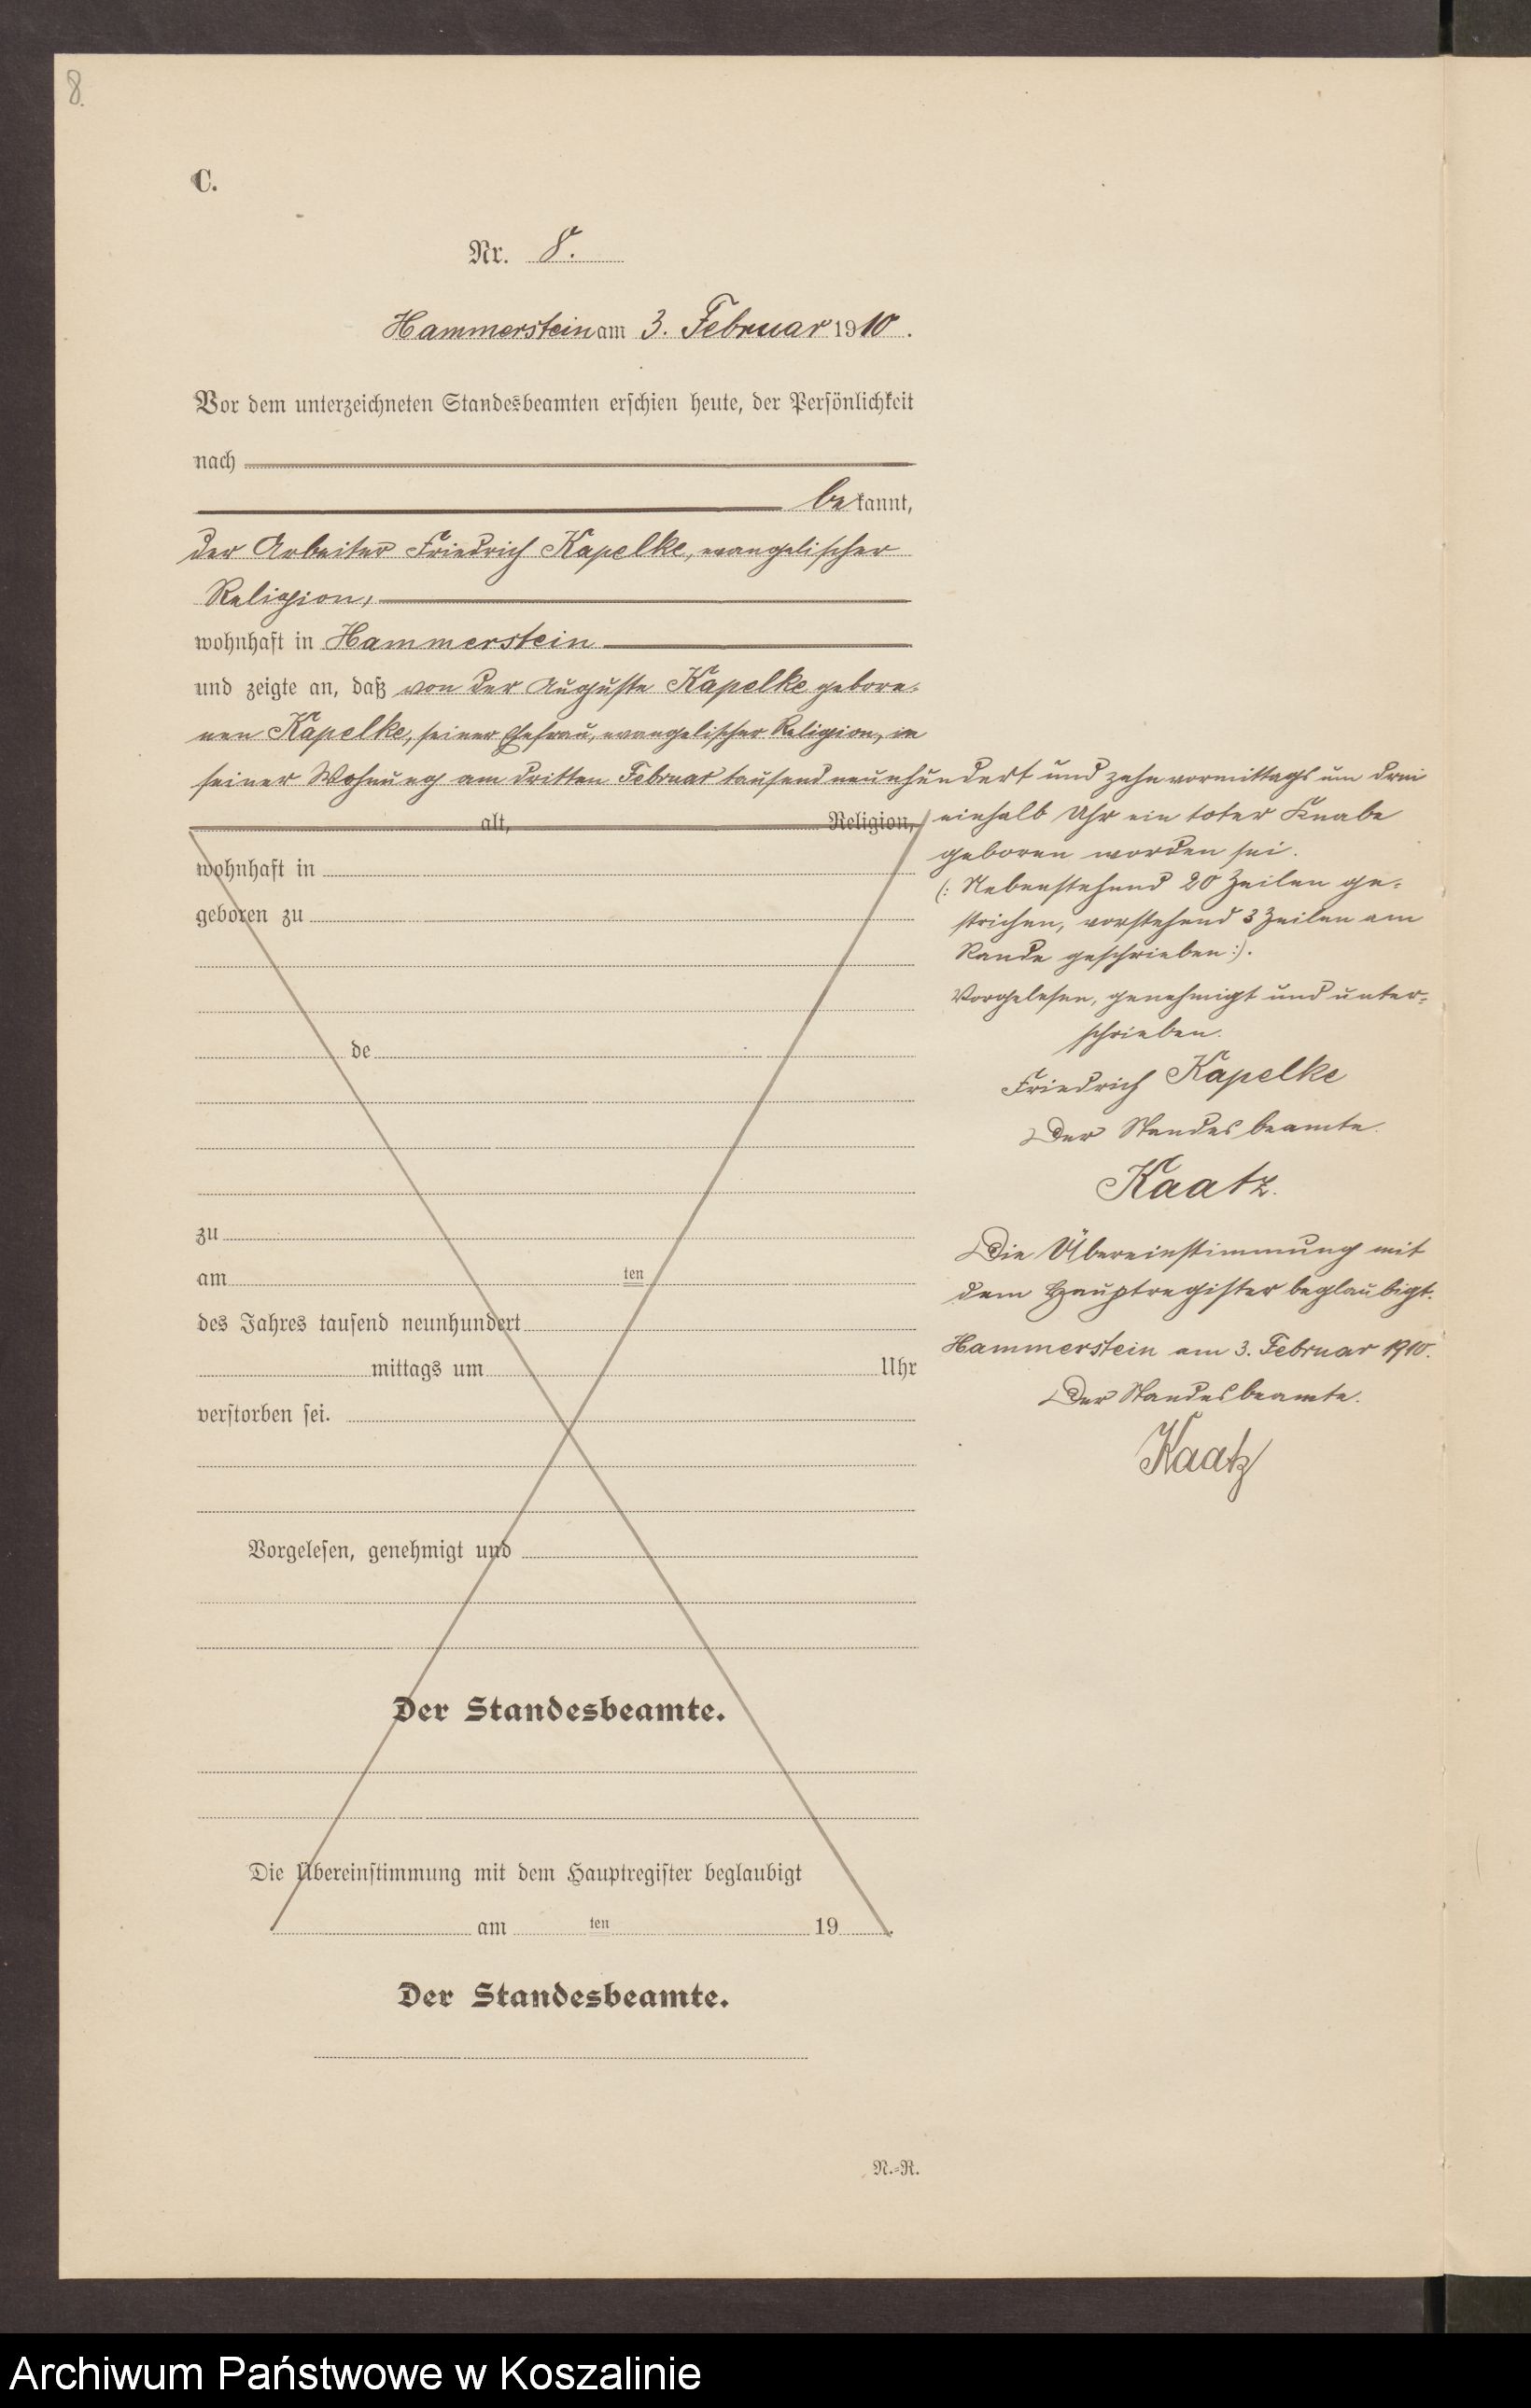 8.
C.
Nr. 8.
Hammerstein am 3. Februar 1910.
Vor dem unterzeichneten Standesbeamten erschien heute, der Persönlichkeit
nach
bekannt,
der Arbeiter Friedrich Kapelke, evangelischer
Religion,
wohnhaft in Hammerstein
und zeigte an, daß von der Auguste Kapelke gebore-
nen Kapelke, seiner Ehefrau, evangelischer Religion, in
seiner Wohnung am dritten Februar tausend neunhundert und zehn vormittags um drei
alt, Religion,
wohnhaft in
geboren zu
de
zu
am ten
des Jahres tausend neunhundert
mittags um Uhr
verstorben sei.
Vorgelesen, genehmigt und
Der Standesbeamte.
Die Übereinstimmung mit dem Hauptregister beglaubigt
am ten 19 .
Der Standesbeamte.
N.-R.
einhalb Uhr ein toter Knabe
geboren worden sei.
(: Nebenstehend 20 Zeilen ge-
strichen, vorstehend 3 Zeilen am
Rande geschrieben :).
Vorgelesen, genehmigt und unter-
schrieben.
Friedrich Kapelke
Der Standesbeamte.
Kaatz.
Die Übereinstimmung mit
dem Hauptregister beglaubigt.
Hammerstein am 3. Februar 1910.
Der Standesbeamte.
Kaatz
Archiwum Państwowe w Koszalinie